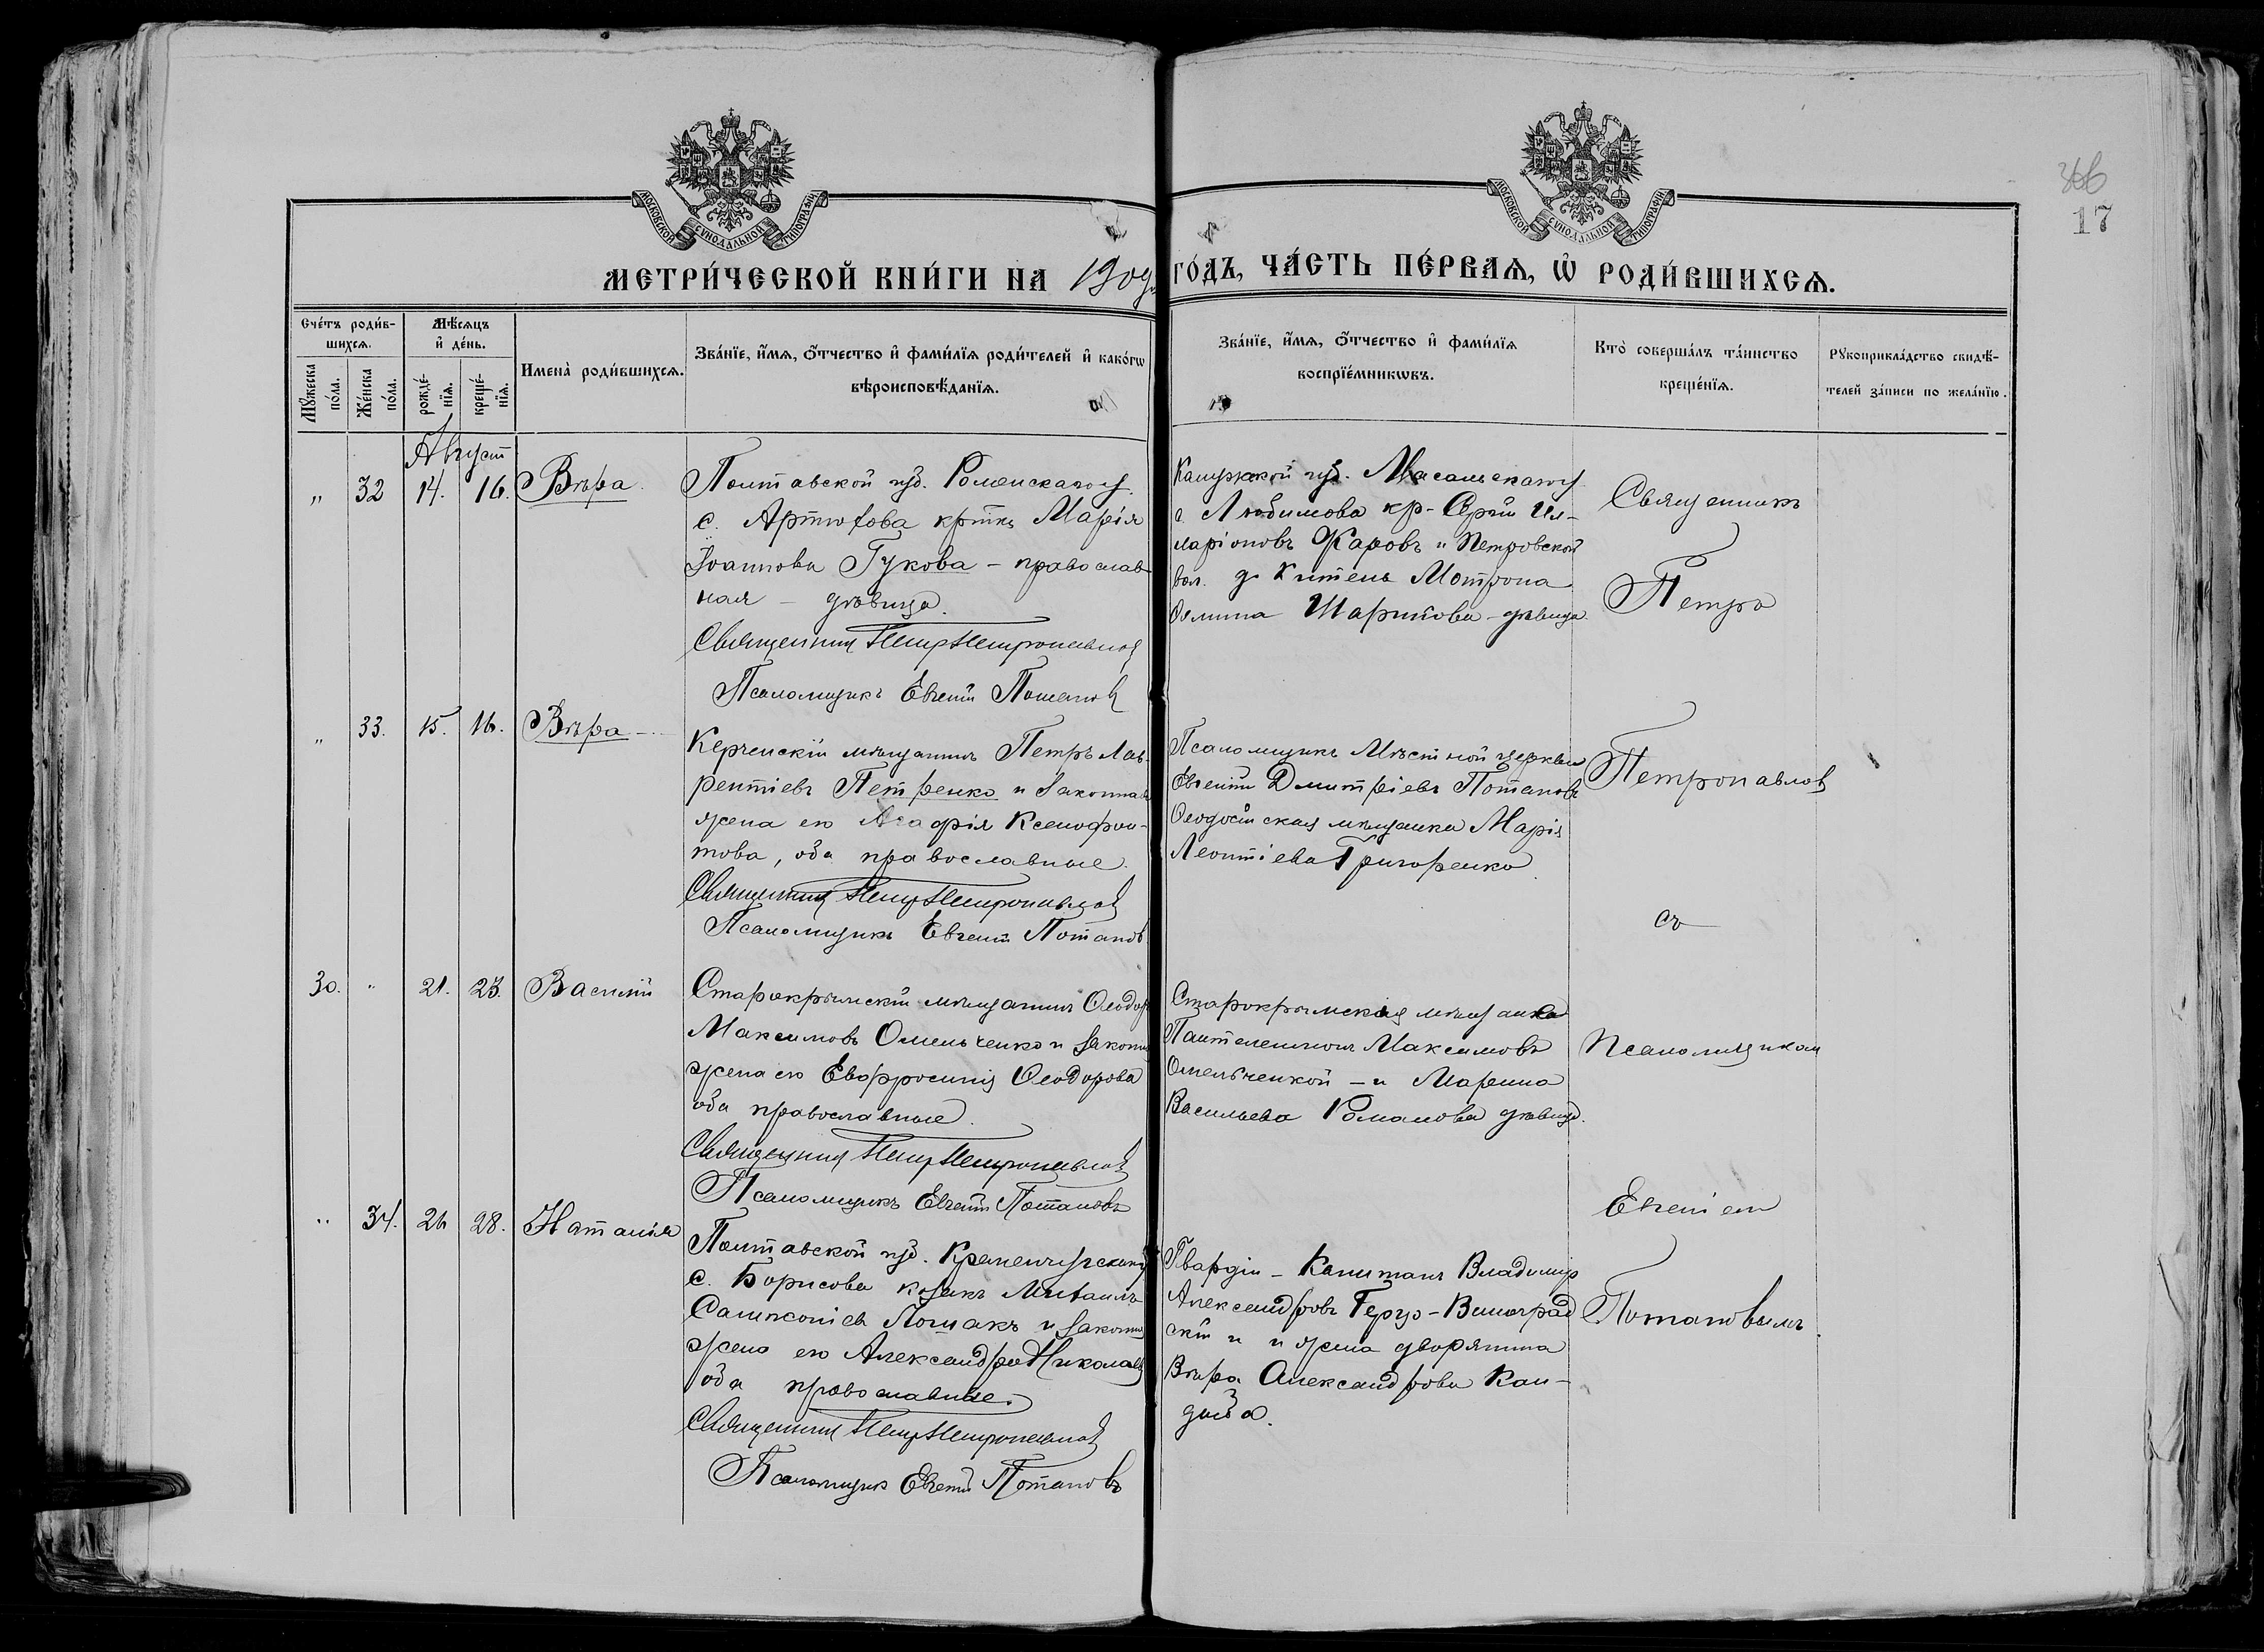 366
17
МОСКОВСКОЙ СѴНОДАЛЬНОЙ ТИПОГРАФІИ
МОСКОВСКОЙ СѴНОДАЛЬНОЙ ТИПОГРАФІИ
МЕТРИ́ЧЕСКОЙ КНИ́ГИ НА 1909 ГО́ДЪ, ЧА́СТЬ ПЕ́РВАѦ, Ѡ҆ РОДИ́ВШИХСѦ.
Сче́тъ роди́в-
шихсѧ.
Мꙋ́жеска по́ла.
Же́нска по́ла.
Мѣ́сѧцъ
и҆ де́нь.
рожде́-нїѧ.
креще́-нїѧ.
Имена̀ роди́вшихсѧ.
Зва́нїе, и҆́мѧ, ѻ҆́тчество и҆ фами́лїѧ роди́телей и҆ како́гѡ
вѣроисповѣ́данїѧ.
Зва́нїе, и҆́мѧ, ѻ҆́тчество и҆ фами́лїѧ
воспрїе́мникѡвъ.
Кто̀ соверша́лъ та́инство
креще́нїѧ.
Рꙋкоприкла́дство свидѣ́-
телей за́писи по жела́нїю.
Августъ
„ 32 14. 16. Вѣра
Полтавской губ. Роменскаго у.
с. Артюхова кр-тка Марія
Іоаннова Гукова – православ
ная – дѣвица.
Священникъ Петръ Петропавловъ
Псаломщикъ Евгеній Потаповъ
Калужской губ. Масальскаго у
с. Любимова кр- Сергій Ил-
ларіоновъ Жаровъ и Петровской
вол. д. Китень Мотрона
Фомина Шарикова – дѣвица.
Священникъ
Петръ
„ 33. 15. 16. Вѣра
Керченскій мѣщанинъ Петръ Лав-
рентіевъ Петренко и законная
жена его Агафія Ксенофон-
това, оба православные
Священникъ Петръ Петропавловъ
Псаломщикъ Евгеній Потаповъ
Псаломщикъ мѣстной церкви
Евгеній Дмитріевъ Потаповъ
Ѳеодосійская мѣщанка Марія
Леонтіева Григоренко
Петропавловъ
съ
30. „ 21. 23. Василій
Старокрымскій мѣщанинъ Ѳеодоръ
Максимовъ Омельченко и законная
жена его Евфросинія Ѳеодорова
оба православные.
Священникъ Петръ Петропавловъ
Псаломщикъ Евгеній Потаповъ
Старокрымская мѣщанка
Пантелеимонъ Максимовъ
Омельченкой – и Марина
Васильева Романова дѣвица.
Псаломщикомъ
Евгеніем
„ 34. 26 28. Наталія
Полтавской губ. Кременчугскаго у
с. Борисова козакъ Михаилъ
Лошакъ и законная
жена его Александра Николаева
оба православные.
Священникъ Петръ Петропавловъ
Псаломщикъ Евгеній Потаповъ
Гвардіи – Капитанъ Владимір
Александровъ Геруз-Виноград
скій и и жена дворянина
Вѣра Александрова Кан-
дыба.
Потаповымъ